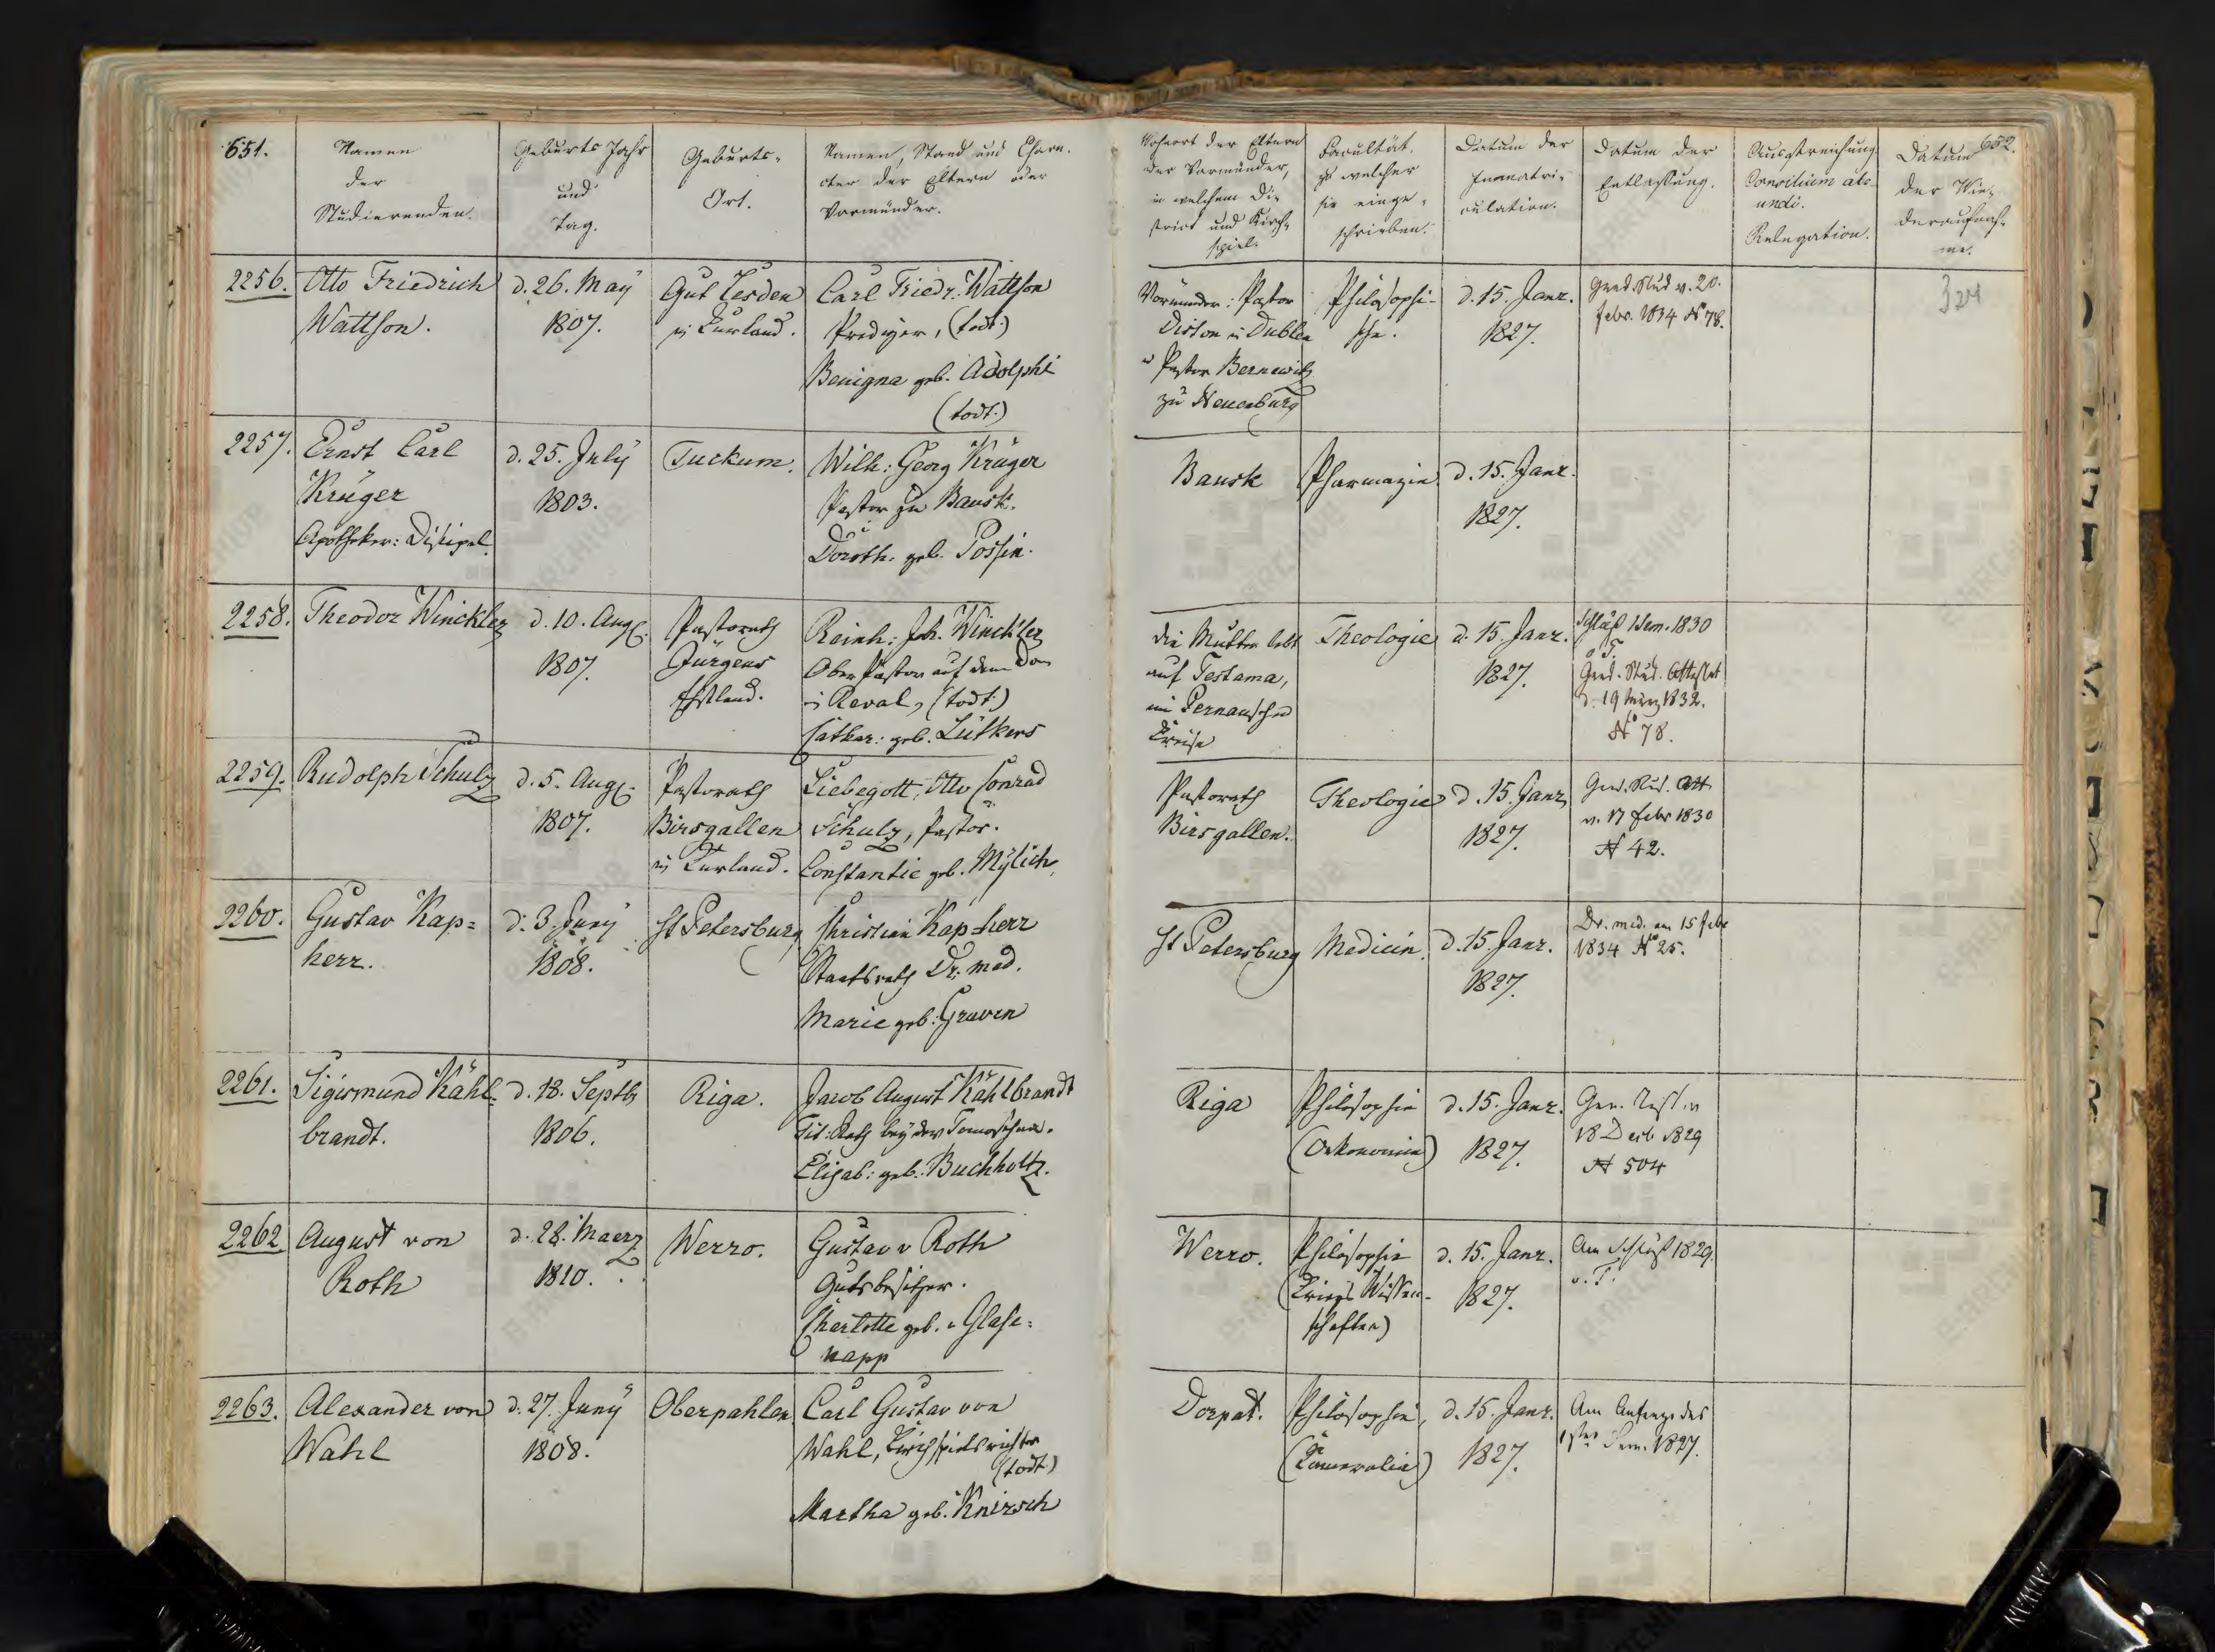 651.
Namen
der
Studierenden.
Geburts Jahr
und
Tag.
Geburts-
Ort.
Namen, Stand und Chara-
cter der Eltern oder
Vormünder.
Wohnort der Eltern
der Vormünder,
in welchem Di-
strict und Kirch-
spiel.
Facultät,
zu welcher
sie einge-
schrieben.
Datum der
Immatri-
culation.
Datum der
Entlaßung.
Ausstreichung
Consilium abe-
undi.
Relegation.
652.
Datum
der Wie-
deraufnah-
me.
2256.
Otto Friedrich
Wattson.
d. 26. Maÿ
1807.
Gut Lesden
in Kurland.
Carl Friedr. Wattson
Prediger, (todt.)
Benigna geb. Adolphi
(todt.)
Vormünder: Pastor
Diston in Dublen
u Pastor Bernewitz
zu Neuenburg
Philosophi-
sche.
d. 15. Janr.
1827.
Grad. Stud v. 20.
febr. 1834 N 78.
324
2257.
Ernst Carl
Krüger
Apotheker: Discipel.
d. 25. Julÿ
1803.
Tuckum.
Wilh: Georg Krüger
Pastor zu Bausk.
Doroth: geb. Possin.
Bausk
Pharmazie
d. 15. Janr.
1827.
2258.
Theodor Winckler
d. 10. Aug.
1807.
Pastorath
Jürgens
Ehstland.
Reinh: Joh. Winckler
Ober Pastor auf dem Dom
in Reval, (todt.)
Cathar: geb. Lütkens
die Mutter lebt
auf Testama,
im Pernauschen
Kreise
Theologie
d. 15. Janr.
1827.
Schluß 1 Sem. 1830
o T.
Grad. Stud. Attestat
d. 19 März 1832.
No 78.
2259.
Rudolph Schulz
d. 5. Aug.
1807.
Pastorath
Birsgallen
in Kurland.
Liebegott, Otto Conrad
Schulz, Pastor.
Constantie geb. Mylich.
Pastorath
Birsgallen.
Theologie
d. 15. Janr.
1827.
Grad. Stud. Att
v. 17 febr 1830
N 42.
2260.
Gustav Kap=
herr.
d. 3. Junÿ
1808.
St Petersburg
Christian Kap=herr
Staatsrath Dr. med.
Marie geb: Graven
St Petersburg
Medicin.
d. 15. Janr.
1827.
Dr. med. am 15 febr
1834 No 25.
2261.
Sigismund Kähl-
brandt.
d. 18. Septbr
1806.
Riga.
Jacob August Kählbrandt
Tit: Rath beÿ der Tamoschna.
Elisab: geb. Buchholtz.
Riga
Philosophie
(Oekonomie)
d. 15. Janr.
1827.
18 Decb 1829
N 504
2262
August von
Roth
d. 28. Maerz
1810.
Werro.
Gustav v Roth
Gutsbesitzer.
Charlotte geb. v Glase=
napp
Werro.
Philosophie
(Kriegs Wissen-
schaften)
d. 15. Janr.
1827.
Am Schluß 1829.
o. T.
2263.
Alexander von
Wahl
d. 27. Junÿ
1808.
Oberpahlen
Carl Gustav von
Wahl, Kirchspielsrichter
(todt.)
Martha geb. Knirsch
Dorpat.
Philosophie,
(Cameralia)
d. 15. Janr.
1827.
Am Anfange des
1sten Sem. 1827.